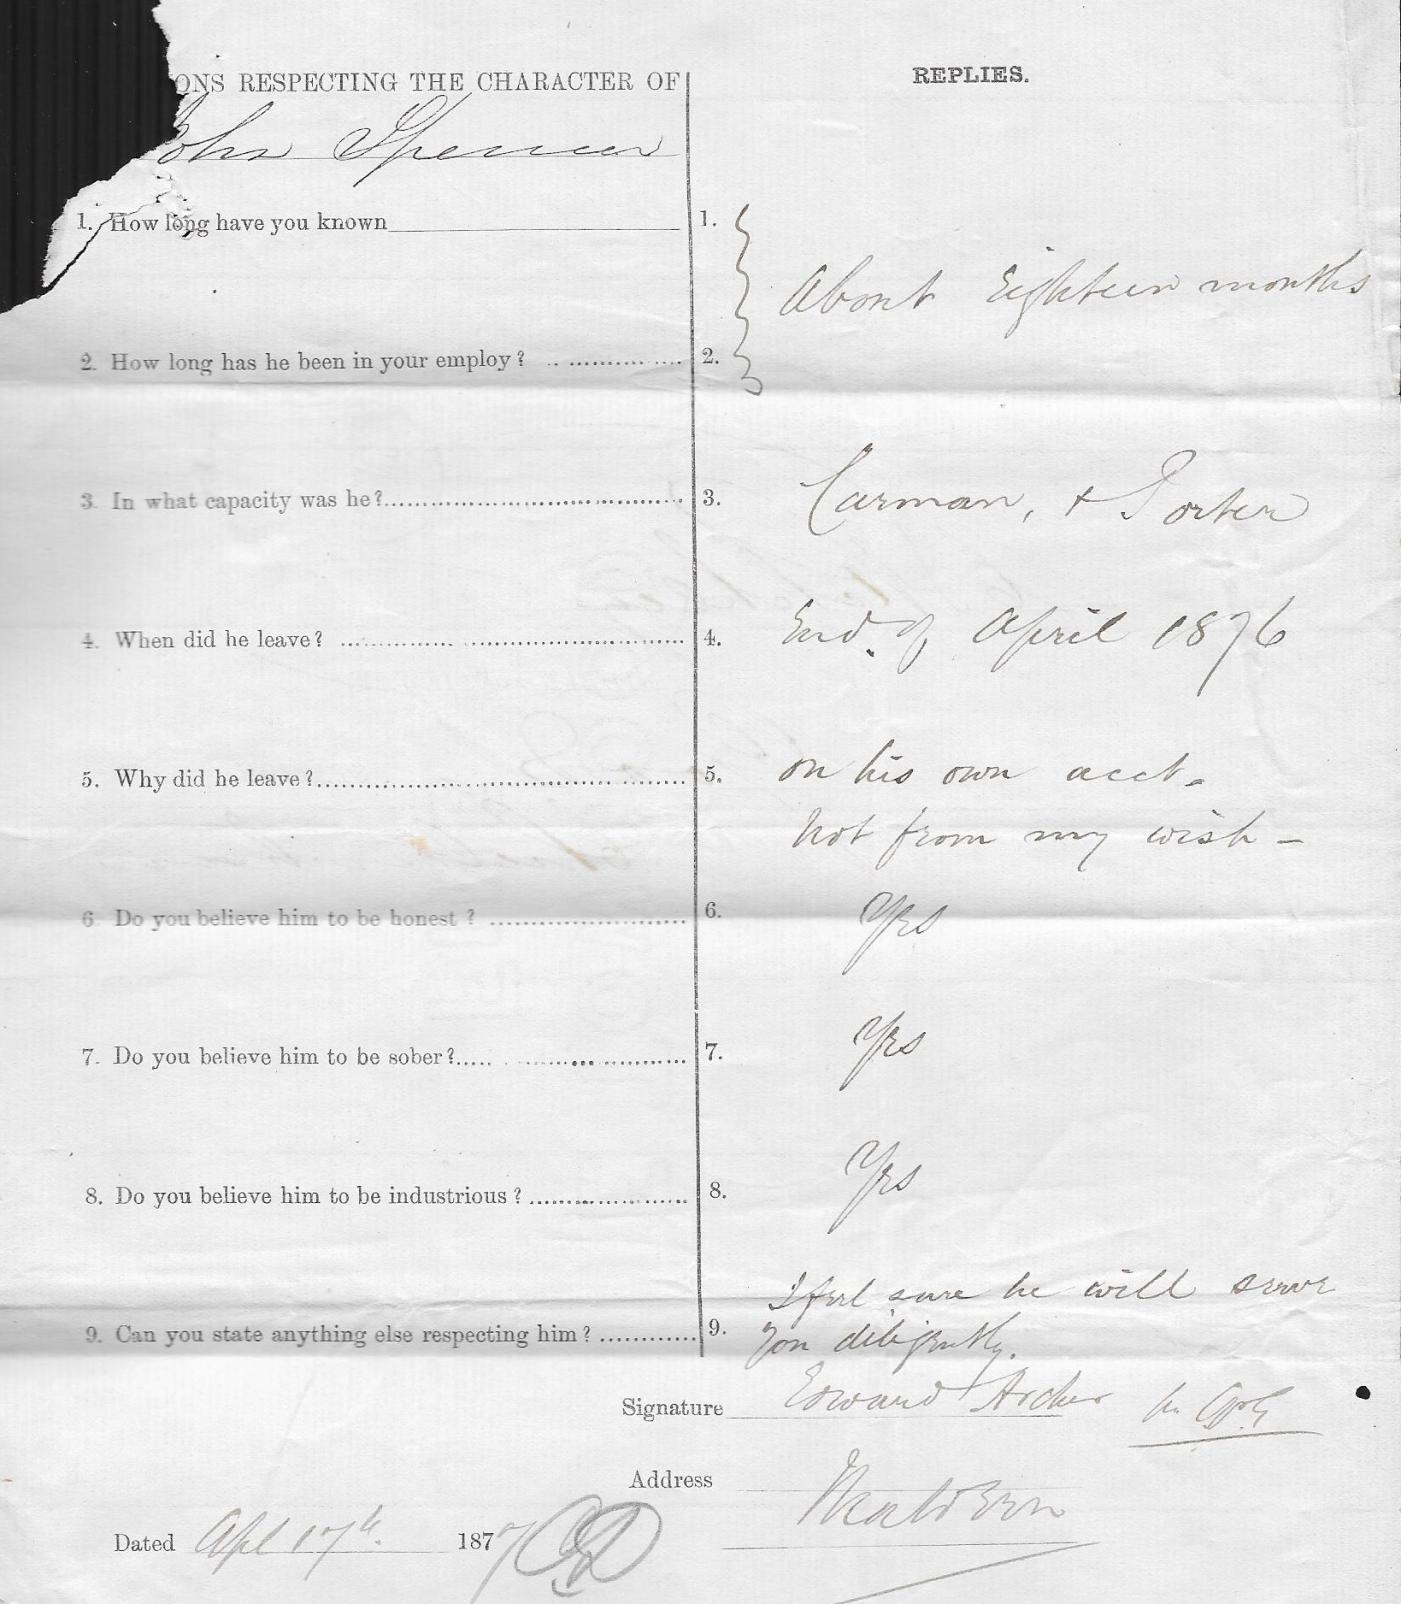 ONS RESPECTING THE CHARACTER OF
REPLIES.
John Spencer
1. How long have you known
1.
About Eighteen months
2. How long has he been in your employ?
2.
3. In what capacity was he?
3.
Carman, & Porter
4. When did he leave?
4.
End of April 1876
5. Why did he leave?
5.
on his own acct.
Not from my wish –
6. Do you believe him to be honest?
6.
Yes
7. Do you believe him to be sober?
7.
Yes
8. Do you believe him to be industrious?
8.
Yes
I feel sure he will serve
9. Can you state anything else respecting him?
9.
you diligently.
Signature
Edward Archer
Address
Maldon
Dated Apl 17th. 1877